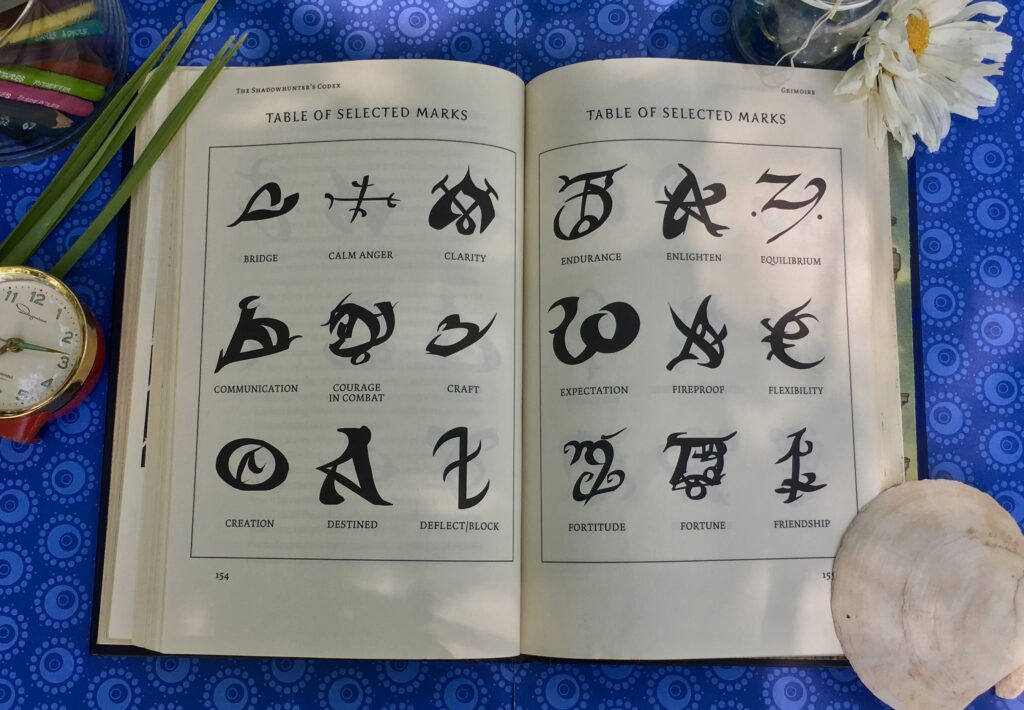 The Shadowhunter's Codex
TABLE OF SELECTED MARKS
BRIDGE
CALM ANGER
CLARITY
COMMUNICATION
COURAGE
IN COMBAT
CRAFT
CREATION
DESTINED
DEFLECT/BLOCK
154
Grimoire
TABLE OF SELECTED MARKS
ENDURANCE
ENLIGHTEN
EQUILIBRIUM
EXPECTATION
FIREPROOF
FLEXIBILITY
FORTITUDE
FORTUNE
FRIENDSHIP
155
11 12 1
2
3